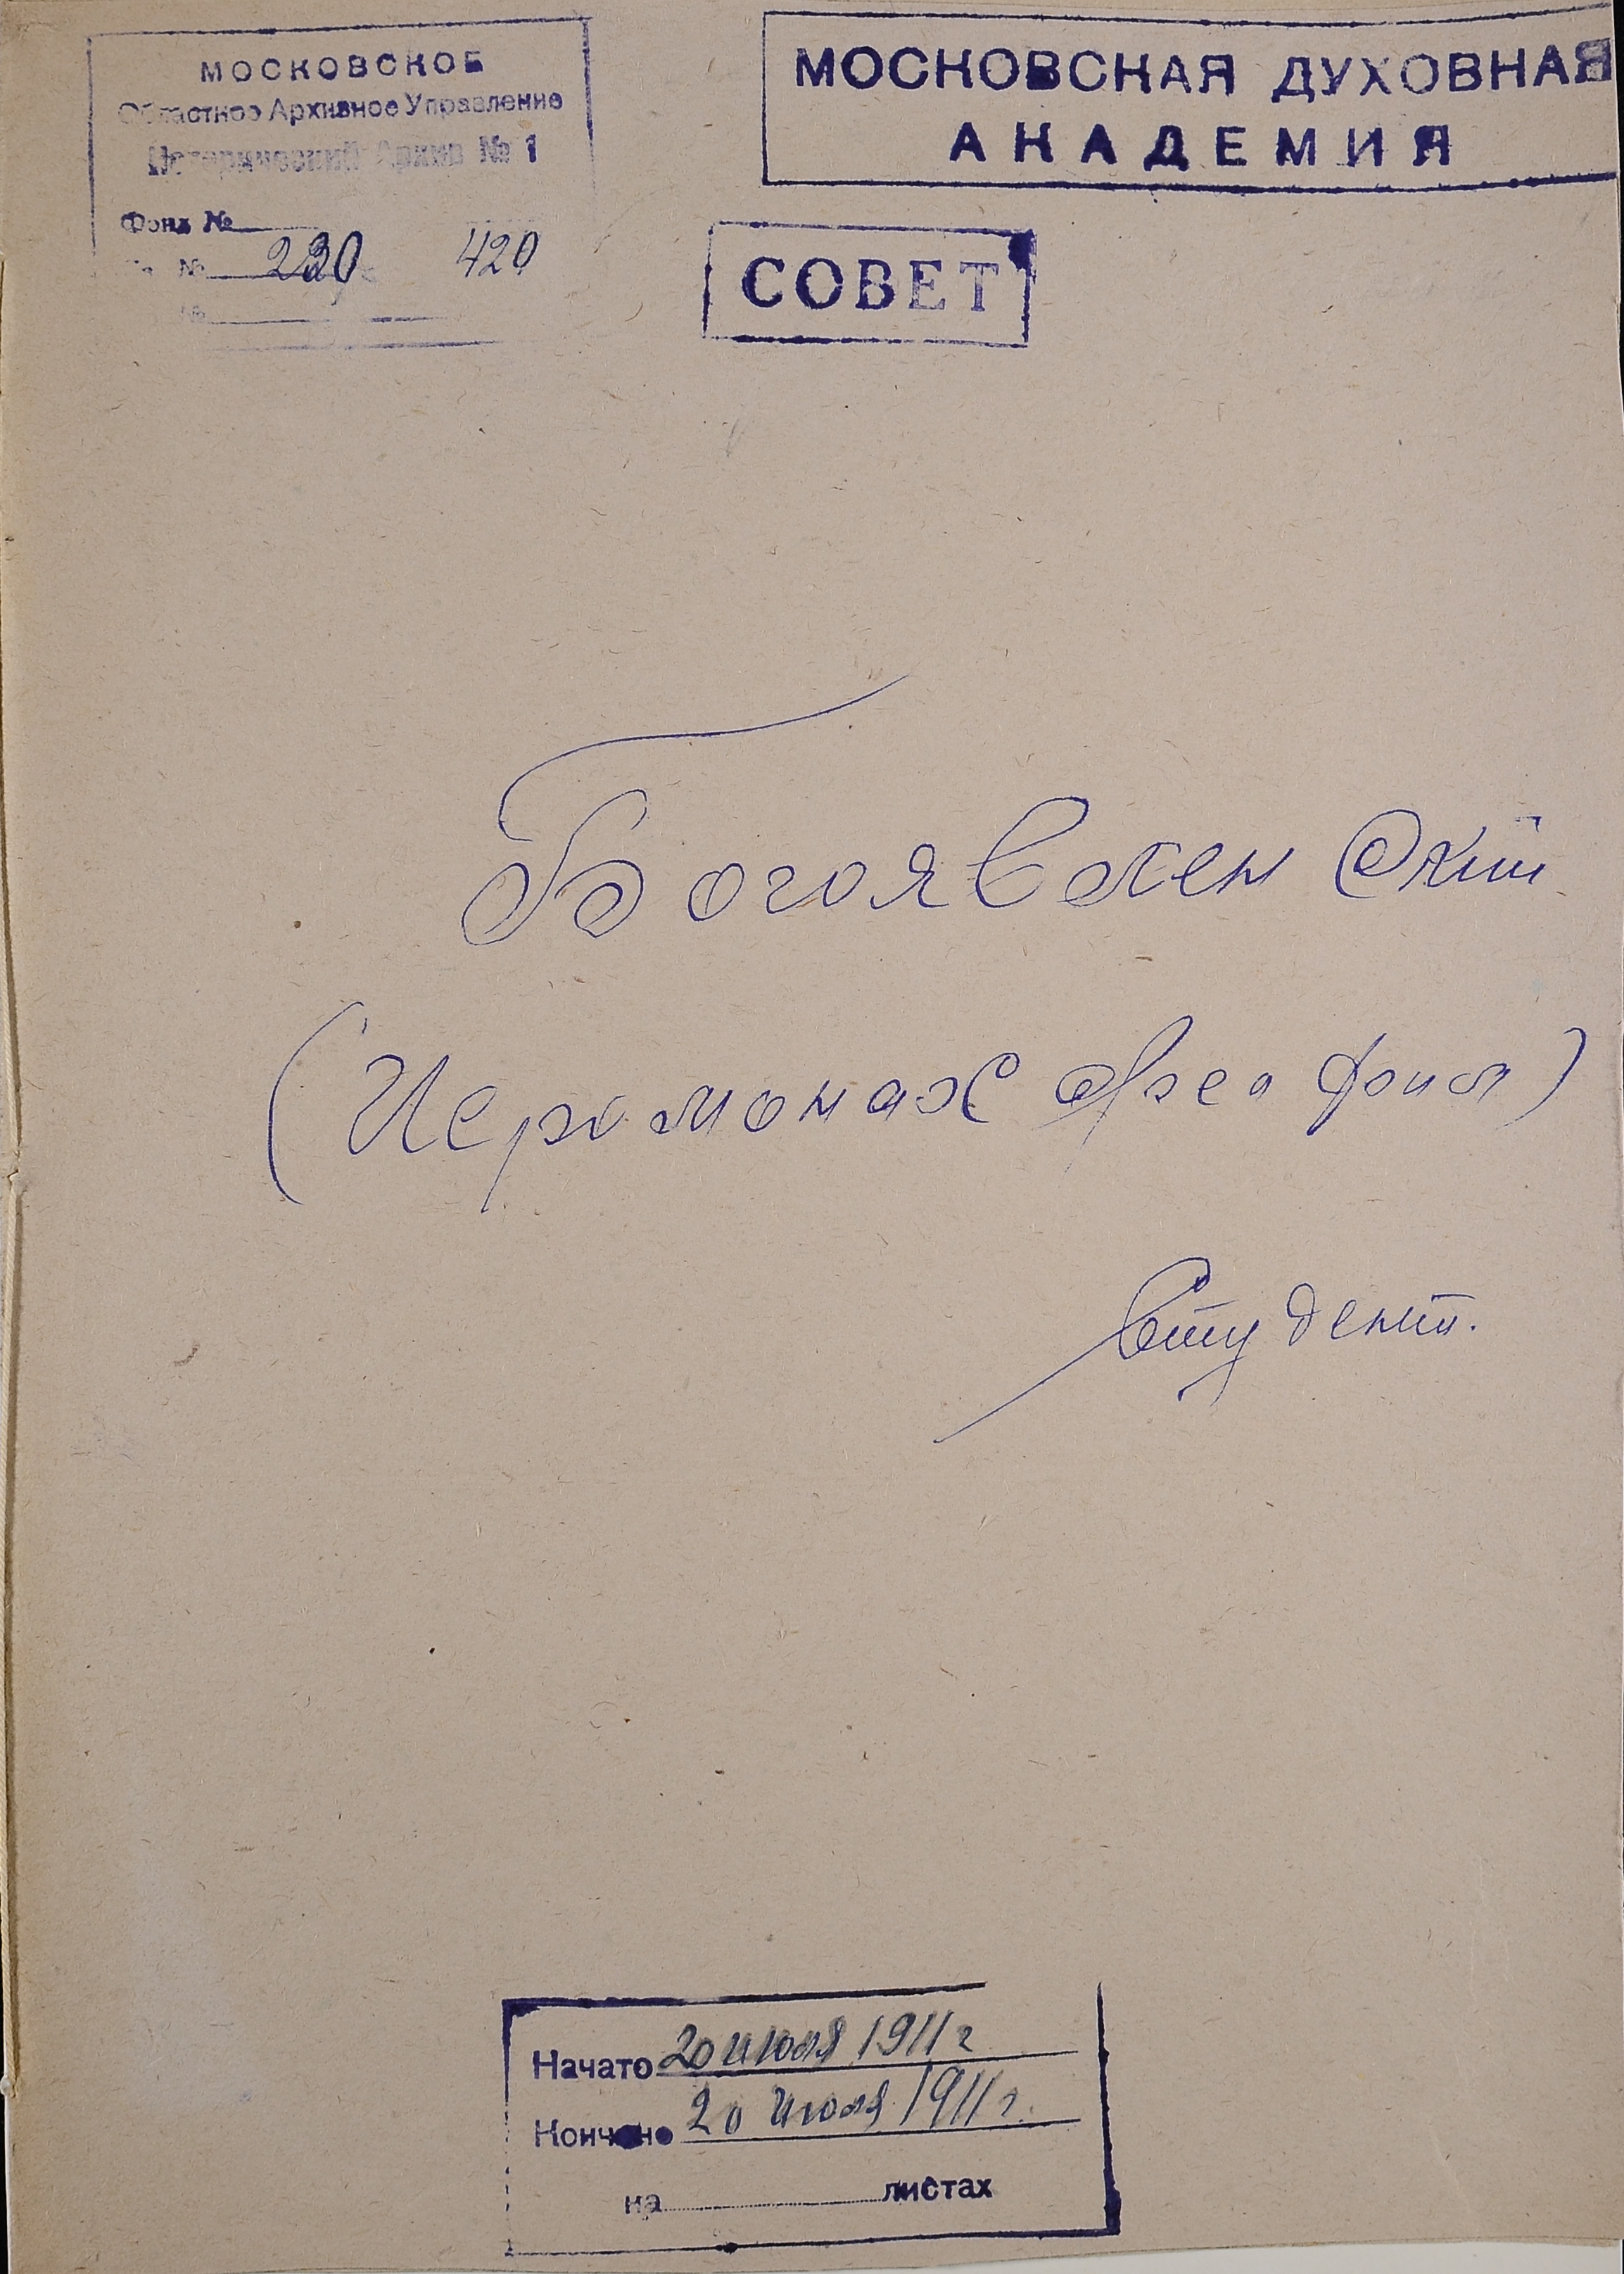 МОСКОВСКОЕ
Областное Архивное Управление
Исторический Архив № 1
Фонд №
№ 230 420
№
МОСКОВСКАЯ ДУХОВНАЯ
АКАДЕМИЯ
СОВЕТ
Богоявленский
(Иеромонах Феофил)
Студент.
Начато 20 июля 1911 г
Кончено 20 июля 1911 г.
на листах